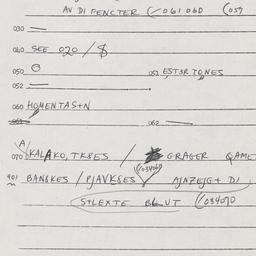 AV DI FENCTER (/061 060 (059
030
040 SEE 020 / $
050 051 ESTOR TONES
052
060 HOMENTAS+N
062
A/
070 KALAKO, TKSES / GRAGER GAME
(/034060
401 BANSKES / PJAVKSES AJNZEJE+ DI
S+LEXTE BLUT (/034070